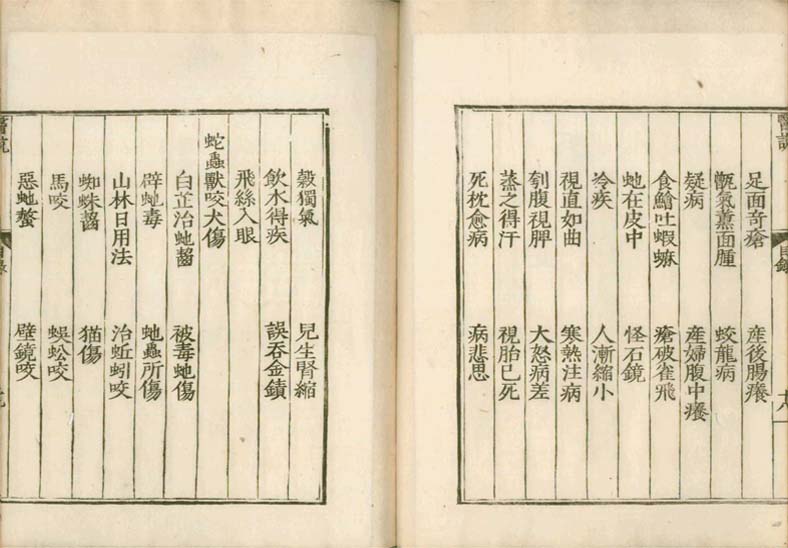 醫說
目錄
十八
足面奇瘡 產後腸癢
甑氣薰面腫 蛟龍病
疑病 產婦腹中癢
食鱠吐蝦蟆 瘡破雀飛
虵在皮中 怪石鏡
冷疾 人漸縮小
視直如曲 寒熱注病
刳腹視脾 大怒病差
蒸之得汗 視胎已死
死枕愈病 病悲思
穀獨氣 兒生腎縮
飲水得疾 誤吞金
飛絲入眼
蛇蟲獸咬犬傷
白芷治虵齧 被毒虵傷
辟虵毒 虵蟲所傷
山林日用法 治蚯蚓咬
蜘蛛齧 猫傷
馬咬 蜈蚣咬
惡虵螫 壁鏡咬